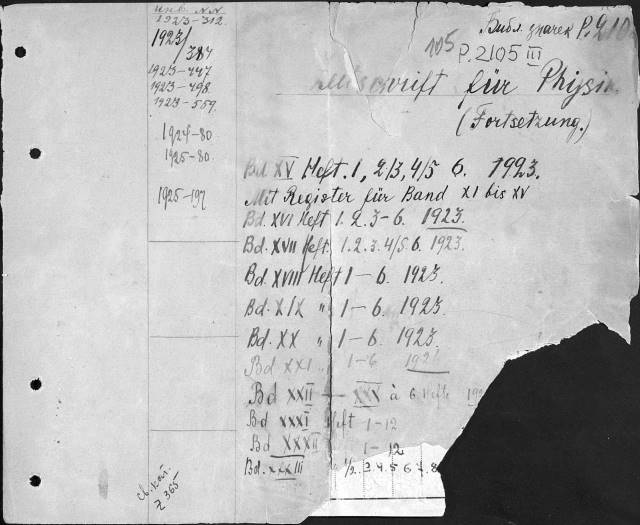 Инв. NN
1923-312.
1923/
384
1923-447
1923-498.
1923-559.
1924-80
1925-80.
1925-197
св. кат.
Z 365
Библ. значек P.210
105
P.2105 III
Zeitschrift für Physik
(Fortsetzung.)
Bd XV Heft. 1, 2/3, 4/5 6. 1923.
Mit Register für Band XI bis XV
Bd. XVI Heft 1. 2. 3-6. 1923.
Bd. XVII Heft. 1. 2. 3. 4/5 6. 1923.
Bd. XVIII Heft 1-6. 1923.
Bd. XIX " 1-6. 1923.
Bd. XX " 1-6. 1923.
Bd XXI " 1-6 1924
Bd XXII - XXX à 6 Hefte 192
Bd XXXI Heft 1-12
Bd XXXII 1-12
Bd. XXXIII 1/2. 3 4 5 6 7 8